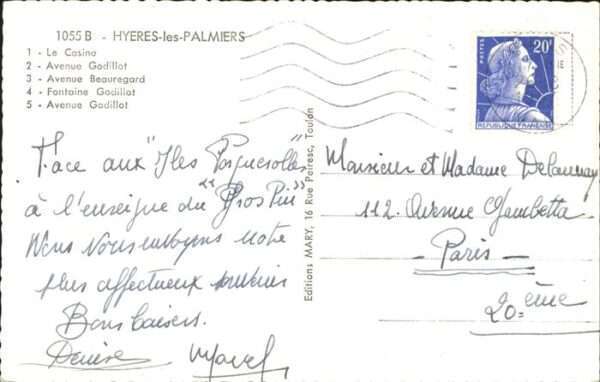 1055 B - HYERES-les-PALMIERS
1 - Le Casino
2 - Avenue Godillot
3 - Avenue Beauregard
4 - Fontaine Godillot
5 - Avenue Godillot
Face aux "Iles Porquerolles"
à l'enseigne du "Gros Pin"
Nous Vous envoyons notre
plus affectueux souvenir
Bons baisers.
Denise Marcel
Editions MARY, 16 Rue Peiresc, Toulon
POSTES
20F
REPUBLIQUE FRANÇAISE
Monsieur et Madame Delaunay
112. Avenue Gambetta
Paris
20ème